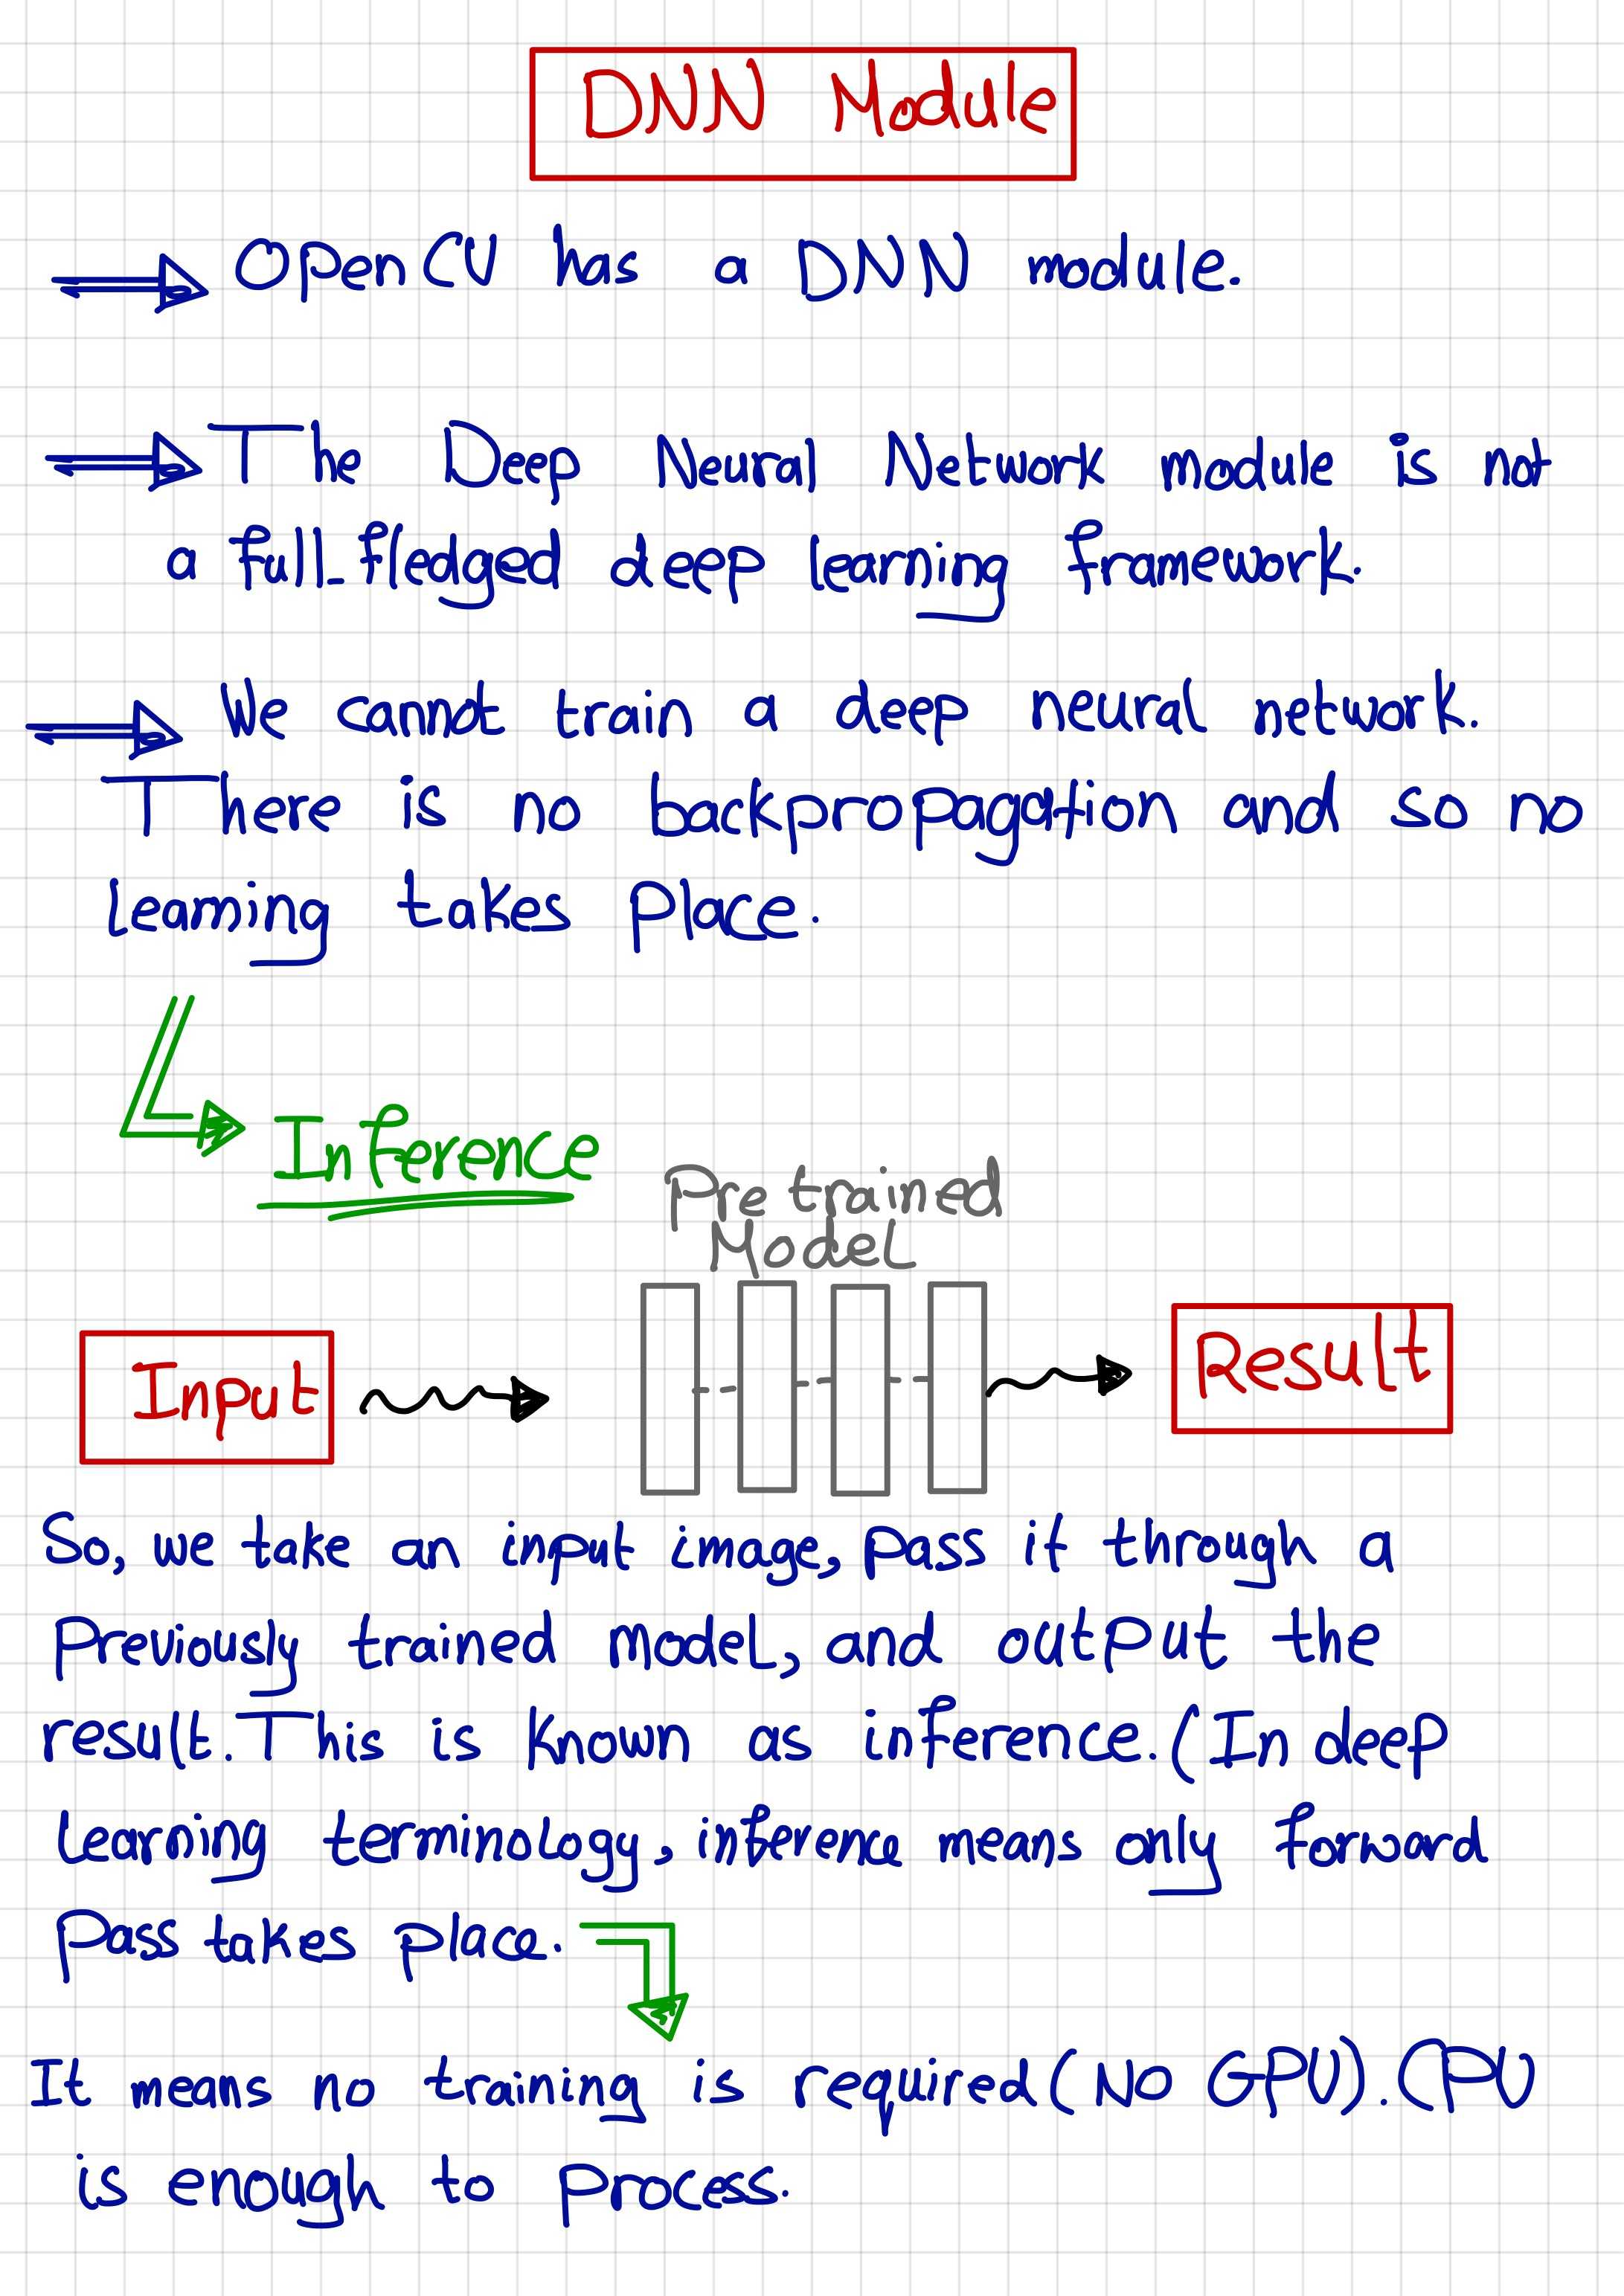 DNN Module
OpenCV has a DNN module.
The Deep Neural Network module is not
a full-fledged deep learning framework.
We cannot train a deep neural network.
There is no backpropagation and so no
learning takes place.
Inference
Pretrained
Model
Input
Result
So, we take an input image, pass it through a
previously trained model, and output the
result. This is known as inference. (In deep
learning terminology, inference means only forward
pass takes place.
It means no training is required (NO GPU). CPU
is enough to process.